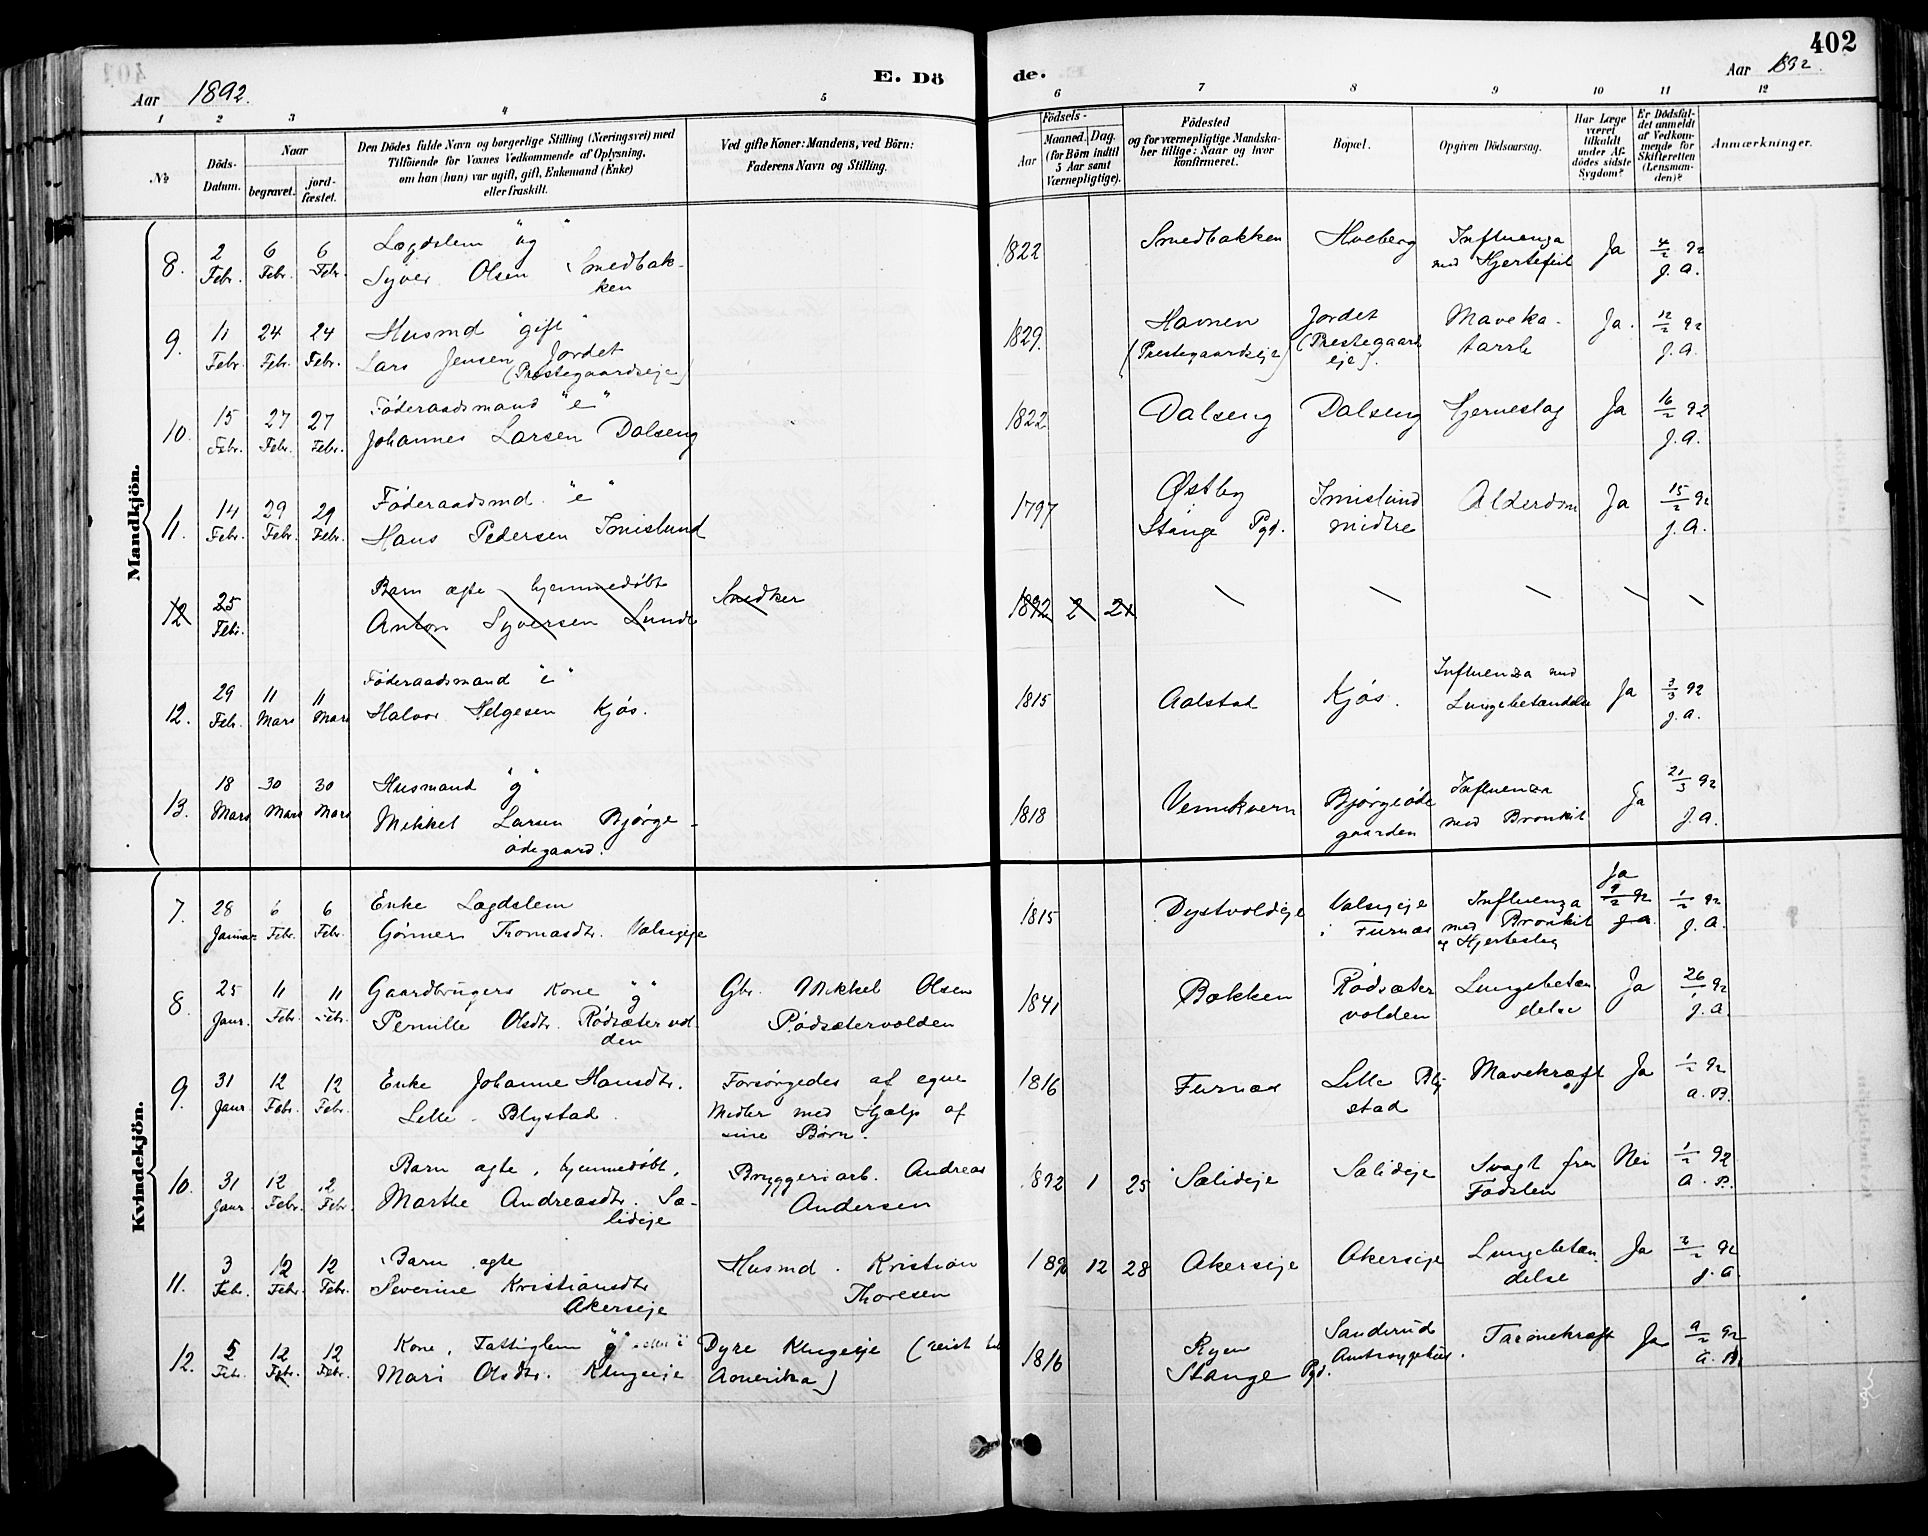 402
E. Dö de.
Aar 1892.
Aar 1892.
1 2 3 4 5 6 7 8 9 10 11 12
No
Döds-Datum.
Naar
begravet.
jord-fæstet.
Den Dödes fulde Navn og borgerlige Stilling (Næringsvei) med
Tilföiende for Voxnes Vedkommende af Oplysning,
om han (hun) var ugift, gift, Enkemand (Enke)
eller fraskilt.
Ved gifte Koner: Mandens, ved Börn:
Faderens Navn og Stilling.
Födsels-
Aar
Maaned.
Dag.
(for Börn indtil
5 Aar samt
Værnepligtige).
Födested
og for værnepligtige Mandska-
ber tillige: Naar og hvor
konfirmeret.
Bopæl.
Opgiven Dödsaarsag.
Har Læge
været
tilkaldt
under Af-
dödes sidste
Sygdom?
Er Dödsfal-
det anmeldt
af Vedkom-
mende for
Skifteretten
(Lensman-
den)?
Anmærkninger.
Mandkjön.
8. 2 Febr. 6 Febr. 6 Febr.
Lægdslem "ug"
Syver Olsen Smedbak-
ken
1822 Smedbakken Hveberg
Influenza
med Hjertefeil
Ja 4/2 92
J. A.
9. 11 Febr. 24 Febr. 24 Febr.
Husmd "gift"
Lars Jensen Jordet
(Prestegaardseje)
1829. Havnen
(Prestegaardseje)
Jordet
(Prestegaards
eje).
Maveka-
tarrh
Ja. 12/2 92
J. A.
10. 15 Febr. 27 Febr. 27 Febr.
Föderaadsmand "e"
Johannes Larsen Dalseng
1822 Dalseng Dalseng Hjerneslag Ja 16/2 92
J. A.
11. 14 Febr. 29 Febr. 29 Febr.
Föderaadsmd. "e"
Hans Pedersen Imislund
1797 Østby
Stange Pgd.
Imislund
midtre
Alderdom Ja 15/2 92
J. A.
12 25 Febr.
Barn ægte hjemmedøbt
Anton Syversen Lunde
Snedker
1892 2 21
12. 29 Febr. 11 Mars 11 Mars
Föderaadsmand "e"
Halvor Helgesen Kjøs.
1815 Aalstad Kjøs.
Influenza med
Lungebetændelse
Ja 3/3 92
J. A.
13. 18 Mars 30 Mars 30 Mars
Husmand "g"
Mikkel Larsen Bjørge-
ødegaard.
1818 Vennkvern
Bjørgeøde
gaarden
Influenza
med Bronkit
Ja 21/3 92
J. A.
Kvindekjön.
7. 28 Januar 6 Febr. 6 Febr.
Enke Lægdslem
Gönner Thomasdtr. Valseje
1815 Dystvoldeje
i Furnæs
Influenza
med Bronkit
og Hjerteslag
Ja
1/2 92
J. A.
8. 25 Janr. 11 Febr. 11 Febr.
Gaardbrugers Kone "g"
Pernille Olsdtr. Rödsætervol
den
Gbr. Mikkel Olsen
Rödsætervolden
1841 Bakken
Rödsæter
volden
Lungebetæn
delse
Ja 26/1 92
J. A.
9. 31 Janr 12 Febr. 12 Febr.
Enke Johanne Hansdtr.
Lille-Blystad.
Forsørgedes af egne
Midler med Hjælp af
sine Børn.
1816 Furnæs
Lille Bly-
stad
Mavekræft Ja 1/2 92
A. B.
10. 31 Janr. 12 Febr. 12 Febr.
Barn ægte, hjemmedøbt,
Marthe Andreasdtr. Sæ-
lideje
Bryggeriarb. Andreas
Andersen
1892 1 25 Sælideje Sælideje
Svagt fra
Fødslen
Nei 1/2 92
A. B.
11. 3 Febr. 12 Febr. 12 Febr.
Barn ægte
Severine Kristiansdtr
Akerseje
Husmd. Kristian
Thoresen
12 28 Akerseje Akerseje
Lungebetæn
delse
Ja 92
J. A.
12. 5 Febr. 12 Febr. 12 Febr.
Kone, Fattiglem "g"
Mari Olsdtr. Klugeeje
Dyre Klugeeje (reist til
Amerika)
1816 Ryen
Stange Pgd.
Sanderud
Amtssygehus.
Tarmekræft Ja 9/2 92
A. B.